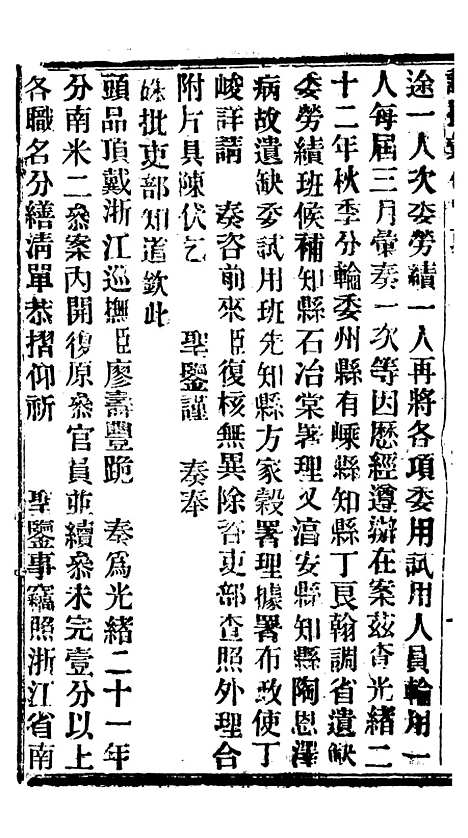 途一人次委勞績一人再將各項委用試用人員輪用一
人每屆三月彙奏一次等因歷經遵辦在案茲查光緒二
十二年秋季分輪委州縣有嵊縣知縣丁良翰調省遺缺
委勞績班候補知縣石冶棠署理又湻安縣知縣陶恩澤
病故遺缺委試用班先知縣方家穀署理據署布政使丁
峻詳請 奏咨前來臣復核無異除咨吏部查照外理合
附片具陳伏乞 聖鑒謹 奏奉
硃批吏部知道欽此
頭品頂戴浙江巡撫臣廖壽豐跪 奏爲光緒二十一年
分南米二叅案內開復原叅官員並續叅未完壹分以上
各職名分繕清單恭摺仰祈 聖鑒事竊照浙江省南